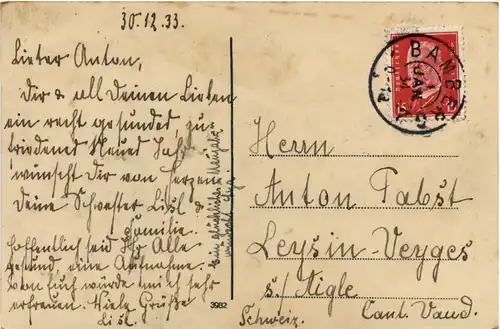 30.12.33.
Lieber Anton,
Dir & all Deinen Lieben
ein recht gesundes, zu-
friedenes Neues Jahr
wünscht Dir von Herzen
Deine Schwester Lisl &
Familie.
Hoffentlich seid Ihr Alle
gesund, eine Aufnahme
von Euch würde mich sehr
erfreuen. Viele Grüße
Lisl.
Ein glückliches Neujahr
wünscht
3982
BAMBERG
JAN
15
Herrn
Anton Pabst
Leysin-Veyges
s./ Aigle
Cant. Vaud.
Schweiz.